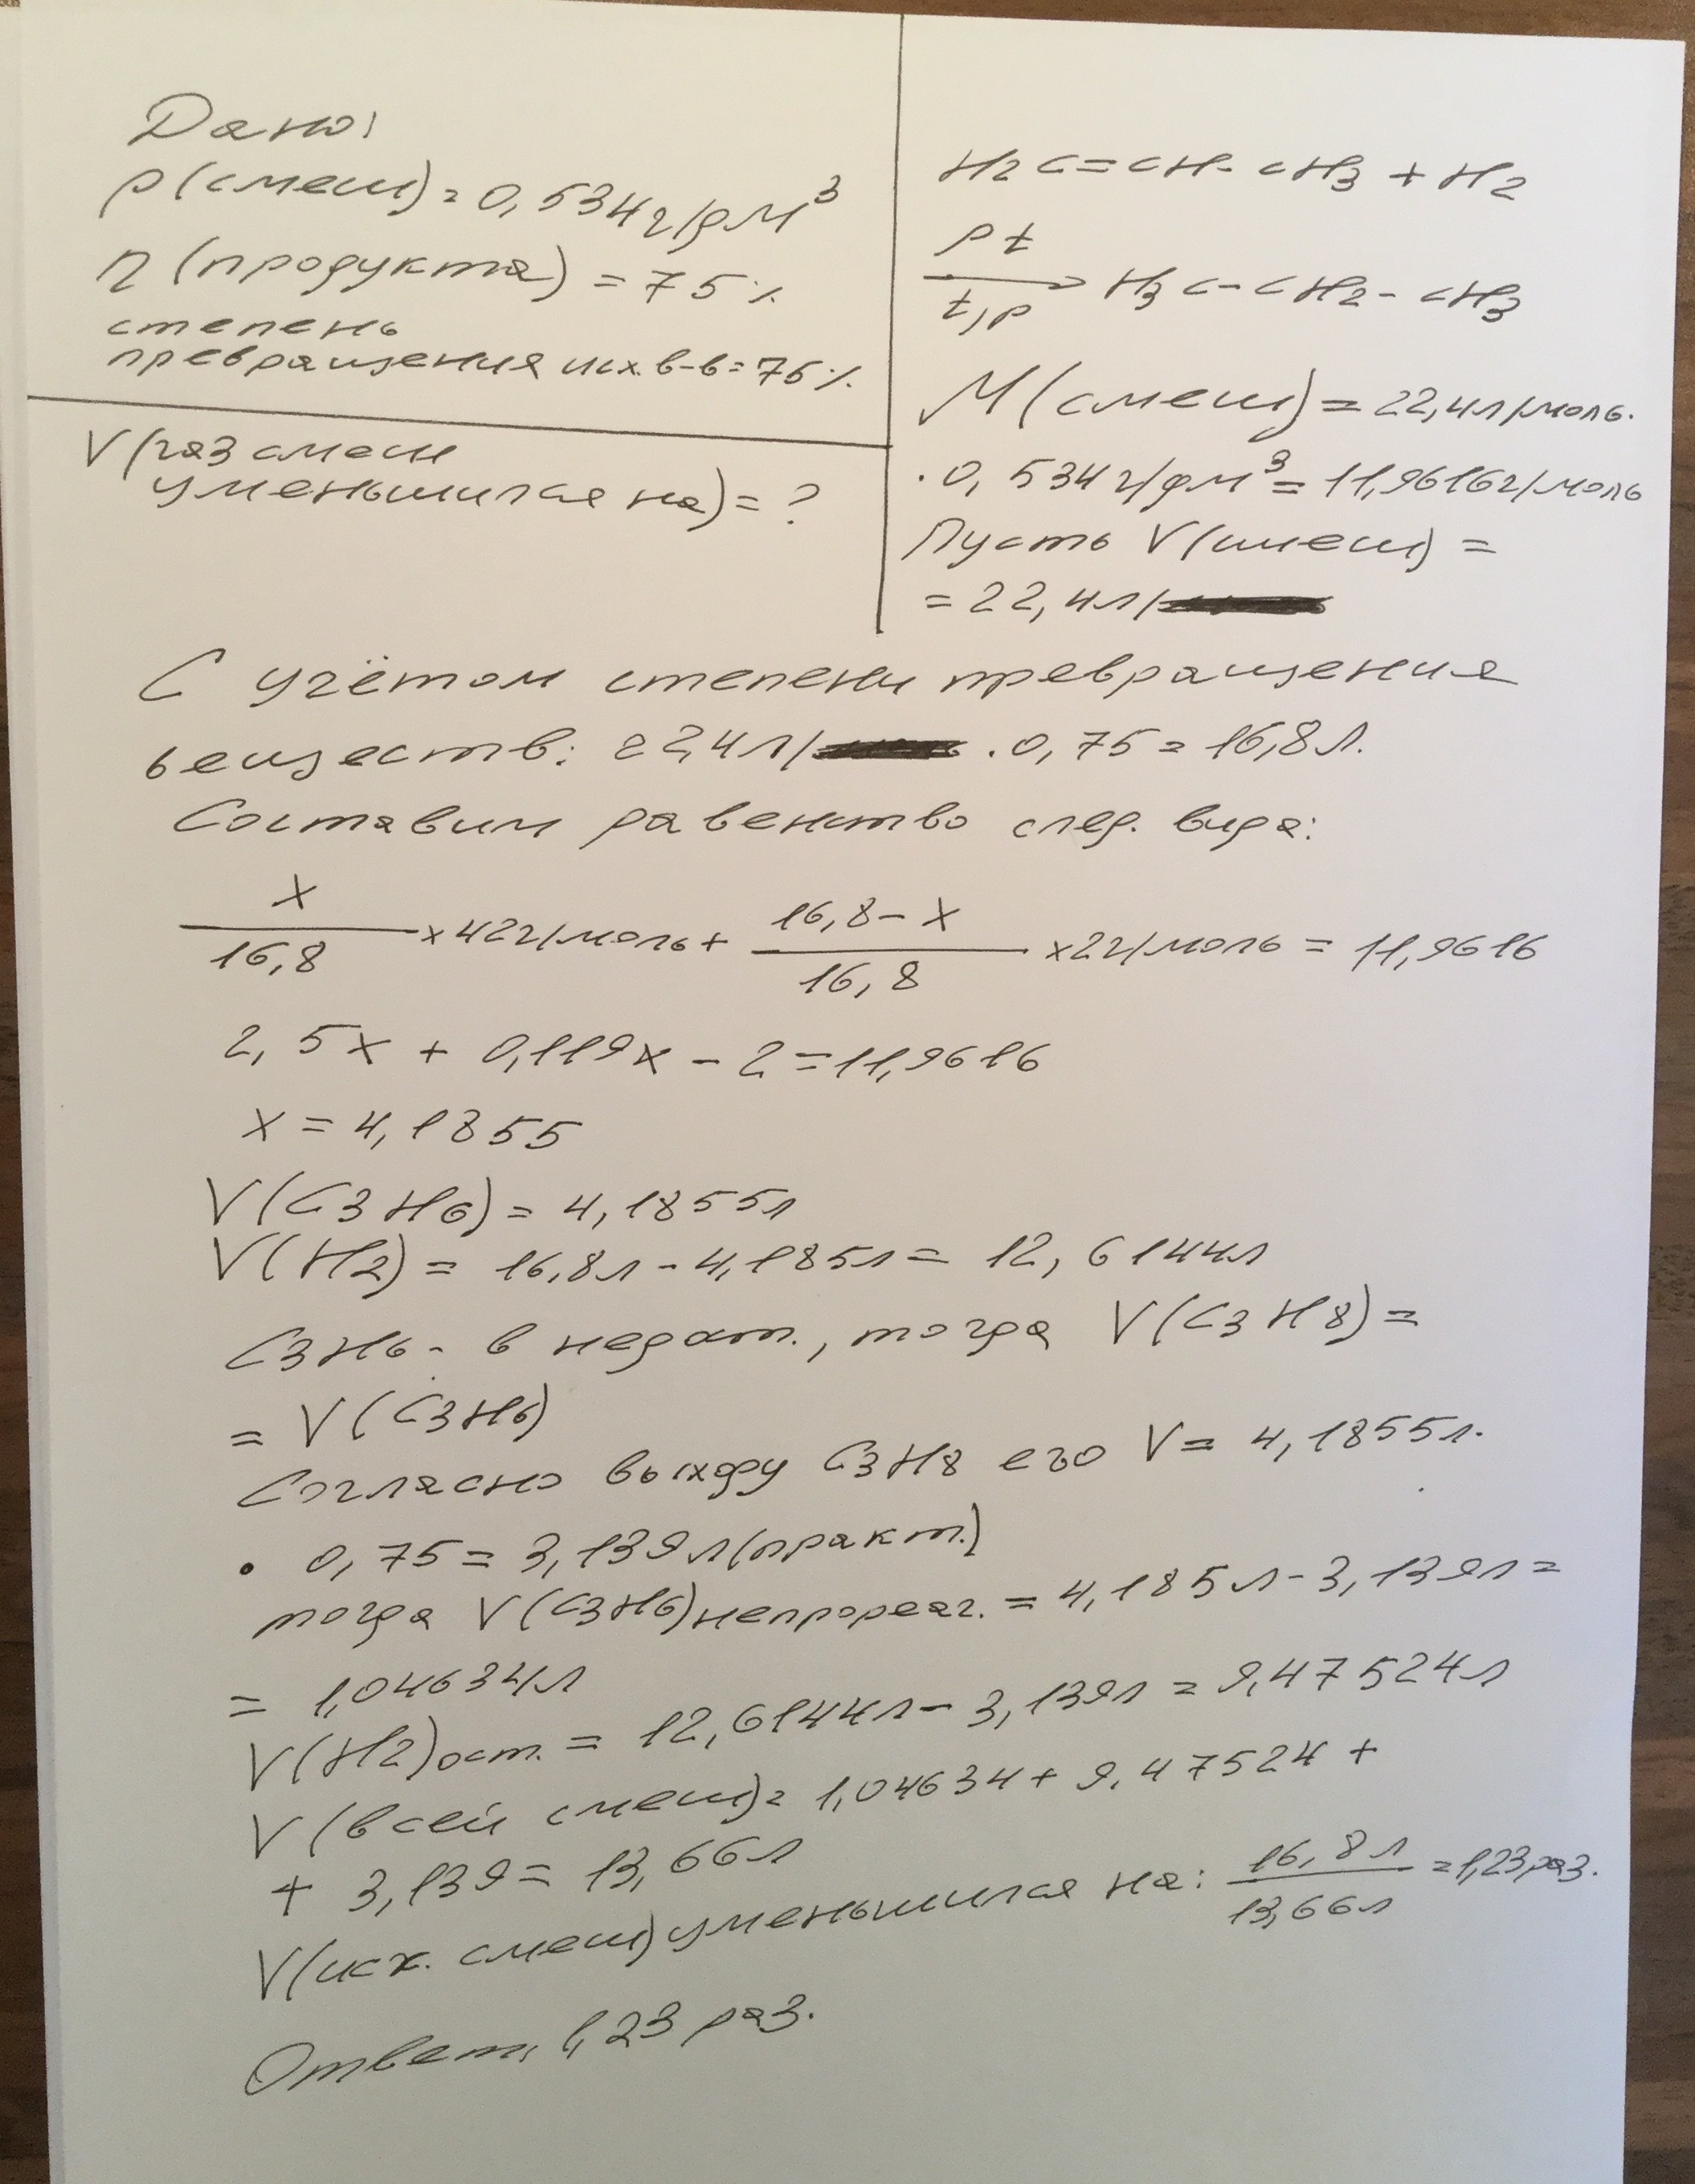 Дано:
ρ(смеш) = 0,534 г/дм³
η (продукта) = 75%
степень
превращения исх. в-в = 75%
V(газ смеси
уменьшился на) = ?
H2C=CH-CH3 + H2
Pt
t,p → H3C-CH2-CH3
M(смеш) = 22,4 л/моль.
· 0,534 г/дм³ = 11,9616 г/моль
Пусть V(смеш) =
= 22,4 л/
С учётом степени превращения
веществ: 22,4 л/ · 0,75 = 16,8 л.
Составим равенство след. вида:
x/16,8 × 42 г/моль + (16,8-x)/16,8 × 2 г/моль = 11,9616
2,5x + 0,119x - 2 = 11,9616
x = 4,1855
V(C3H6) = 4,1855 л
V(H2) = 16,8 л - 4,185 л = 12,6144 л
C3H6 - в недост., тогда V(C3H8) =
= V(C3H6)
Согласно выходу C3H8 его V = 4,1855 л.
· 0,75 = 3,139 л (практ.)
тогда V(C3H6) непрореаг. = 4,185 л - 3,139 л =
= 1,04634 л
V(H2) ост. = 12,6144 л - 3,139 л = 9,47524 л
V(всей смеш) = 1,04634 + 9,47524 +
+ 3,139 = 13,66 л
V(исх. смеш) уменьшился на: 16,8 л/13,66 л = 1,23 раз.
Ответ: 1,23 раз.